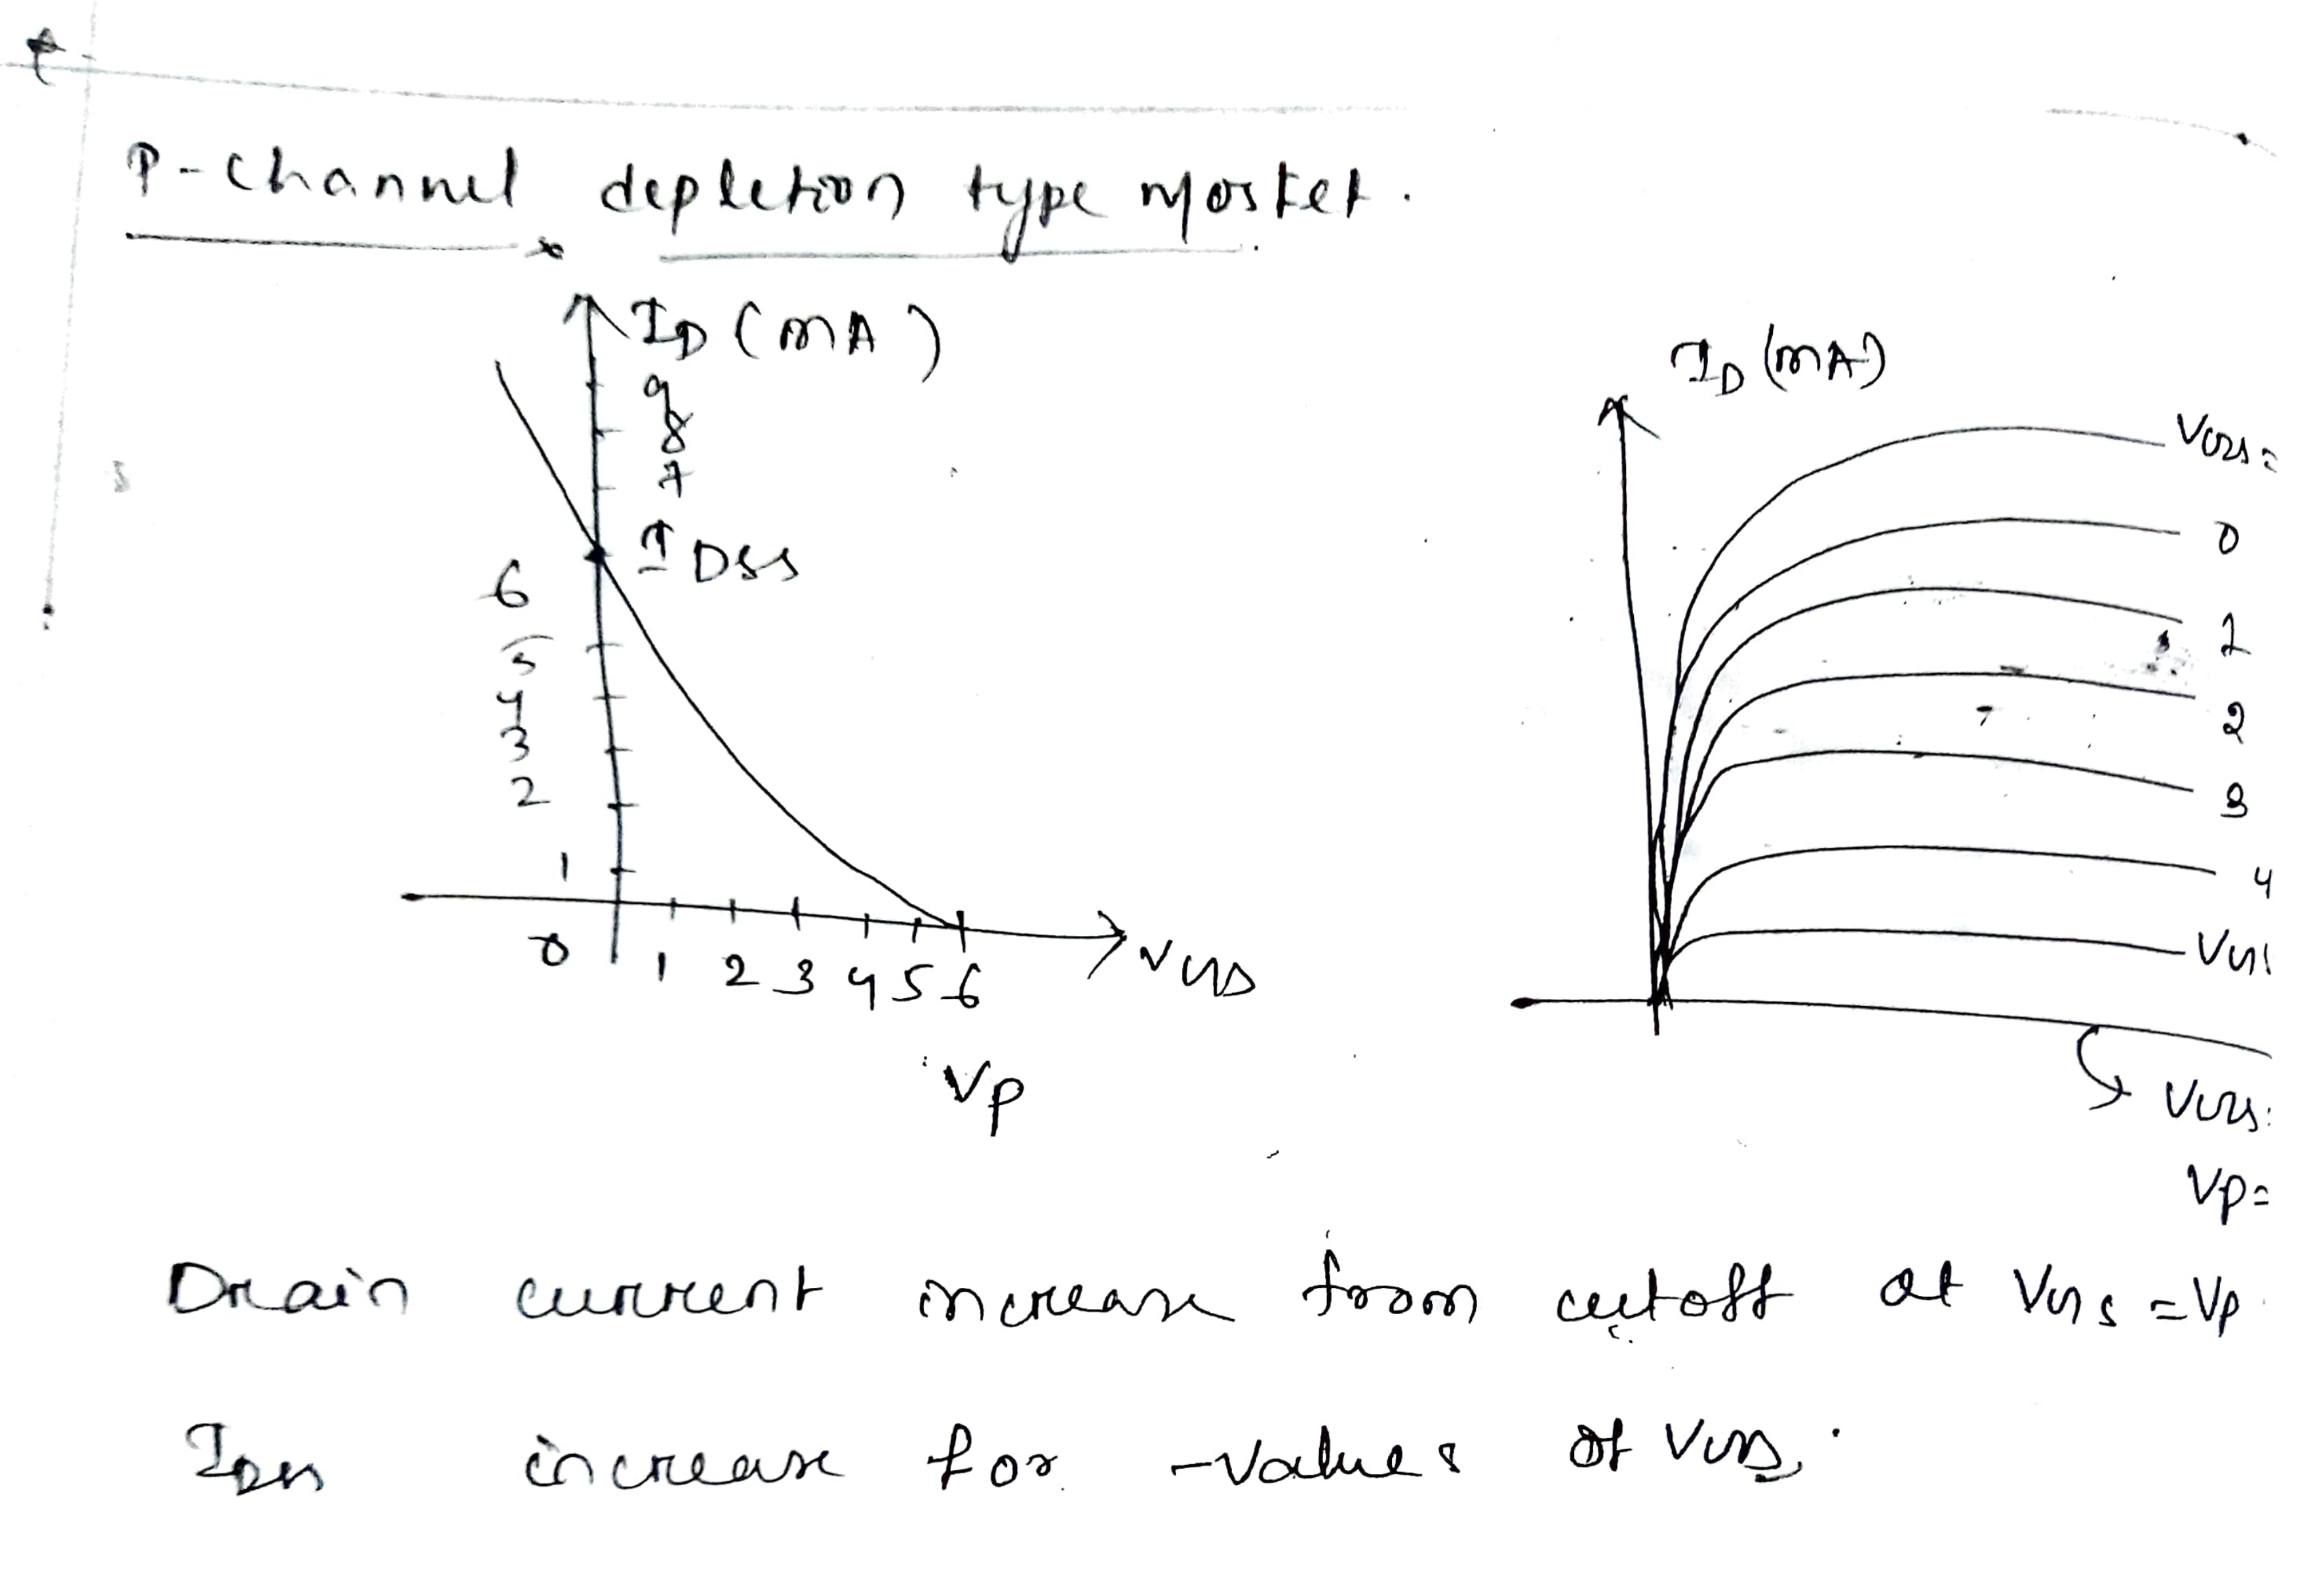 P-Channel depletion type Mosfet.
ID (mA)
9
8
7
IDSS
6
5
4
3
2
1
0
1 2 3 4 5 6
VGS
Vp
ID (mA)
VGS=
0
1
2
3
4
VGS
VGS=
Vp=
Drain current increase from cutoff at VGS = Vp
IDSS increase for -values of VGS.